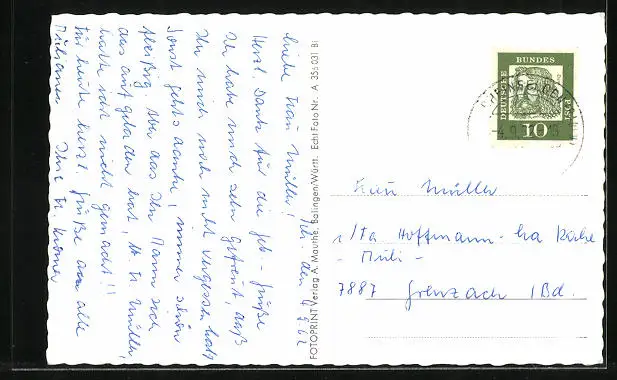 den 4.9.62
Liebe Frau Müller!
Herzl. Dank für die Geb-Grüße
Ich habe mich sehr gefreut, daß
Sie mich noch nicht vergessen habt
Sonst geht's danke, immer schön
fleißig. Aber das Ihr Mann sich
das aufgeladen hat, Fr. Müller,
hätte ich nicht gemacht!!
Für heute herzl. Grüße an alle
Ihre Fr. Kromer
FOTOPRINT Verlag A. Mauthe, Balingen/Württ. Echt Foto Nr. A 355031 Bi
DEUTSCHE BUNDES POST
10
Frau Müller
i/Fa Hoffmann-La Roche
7887 Grenzach /Bd.